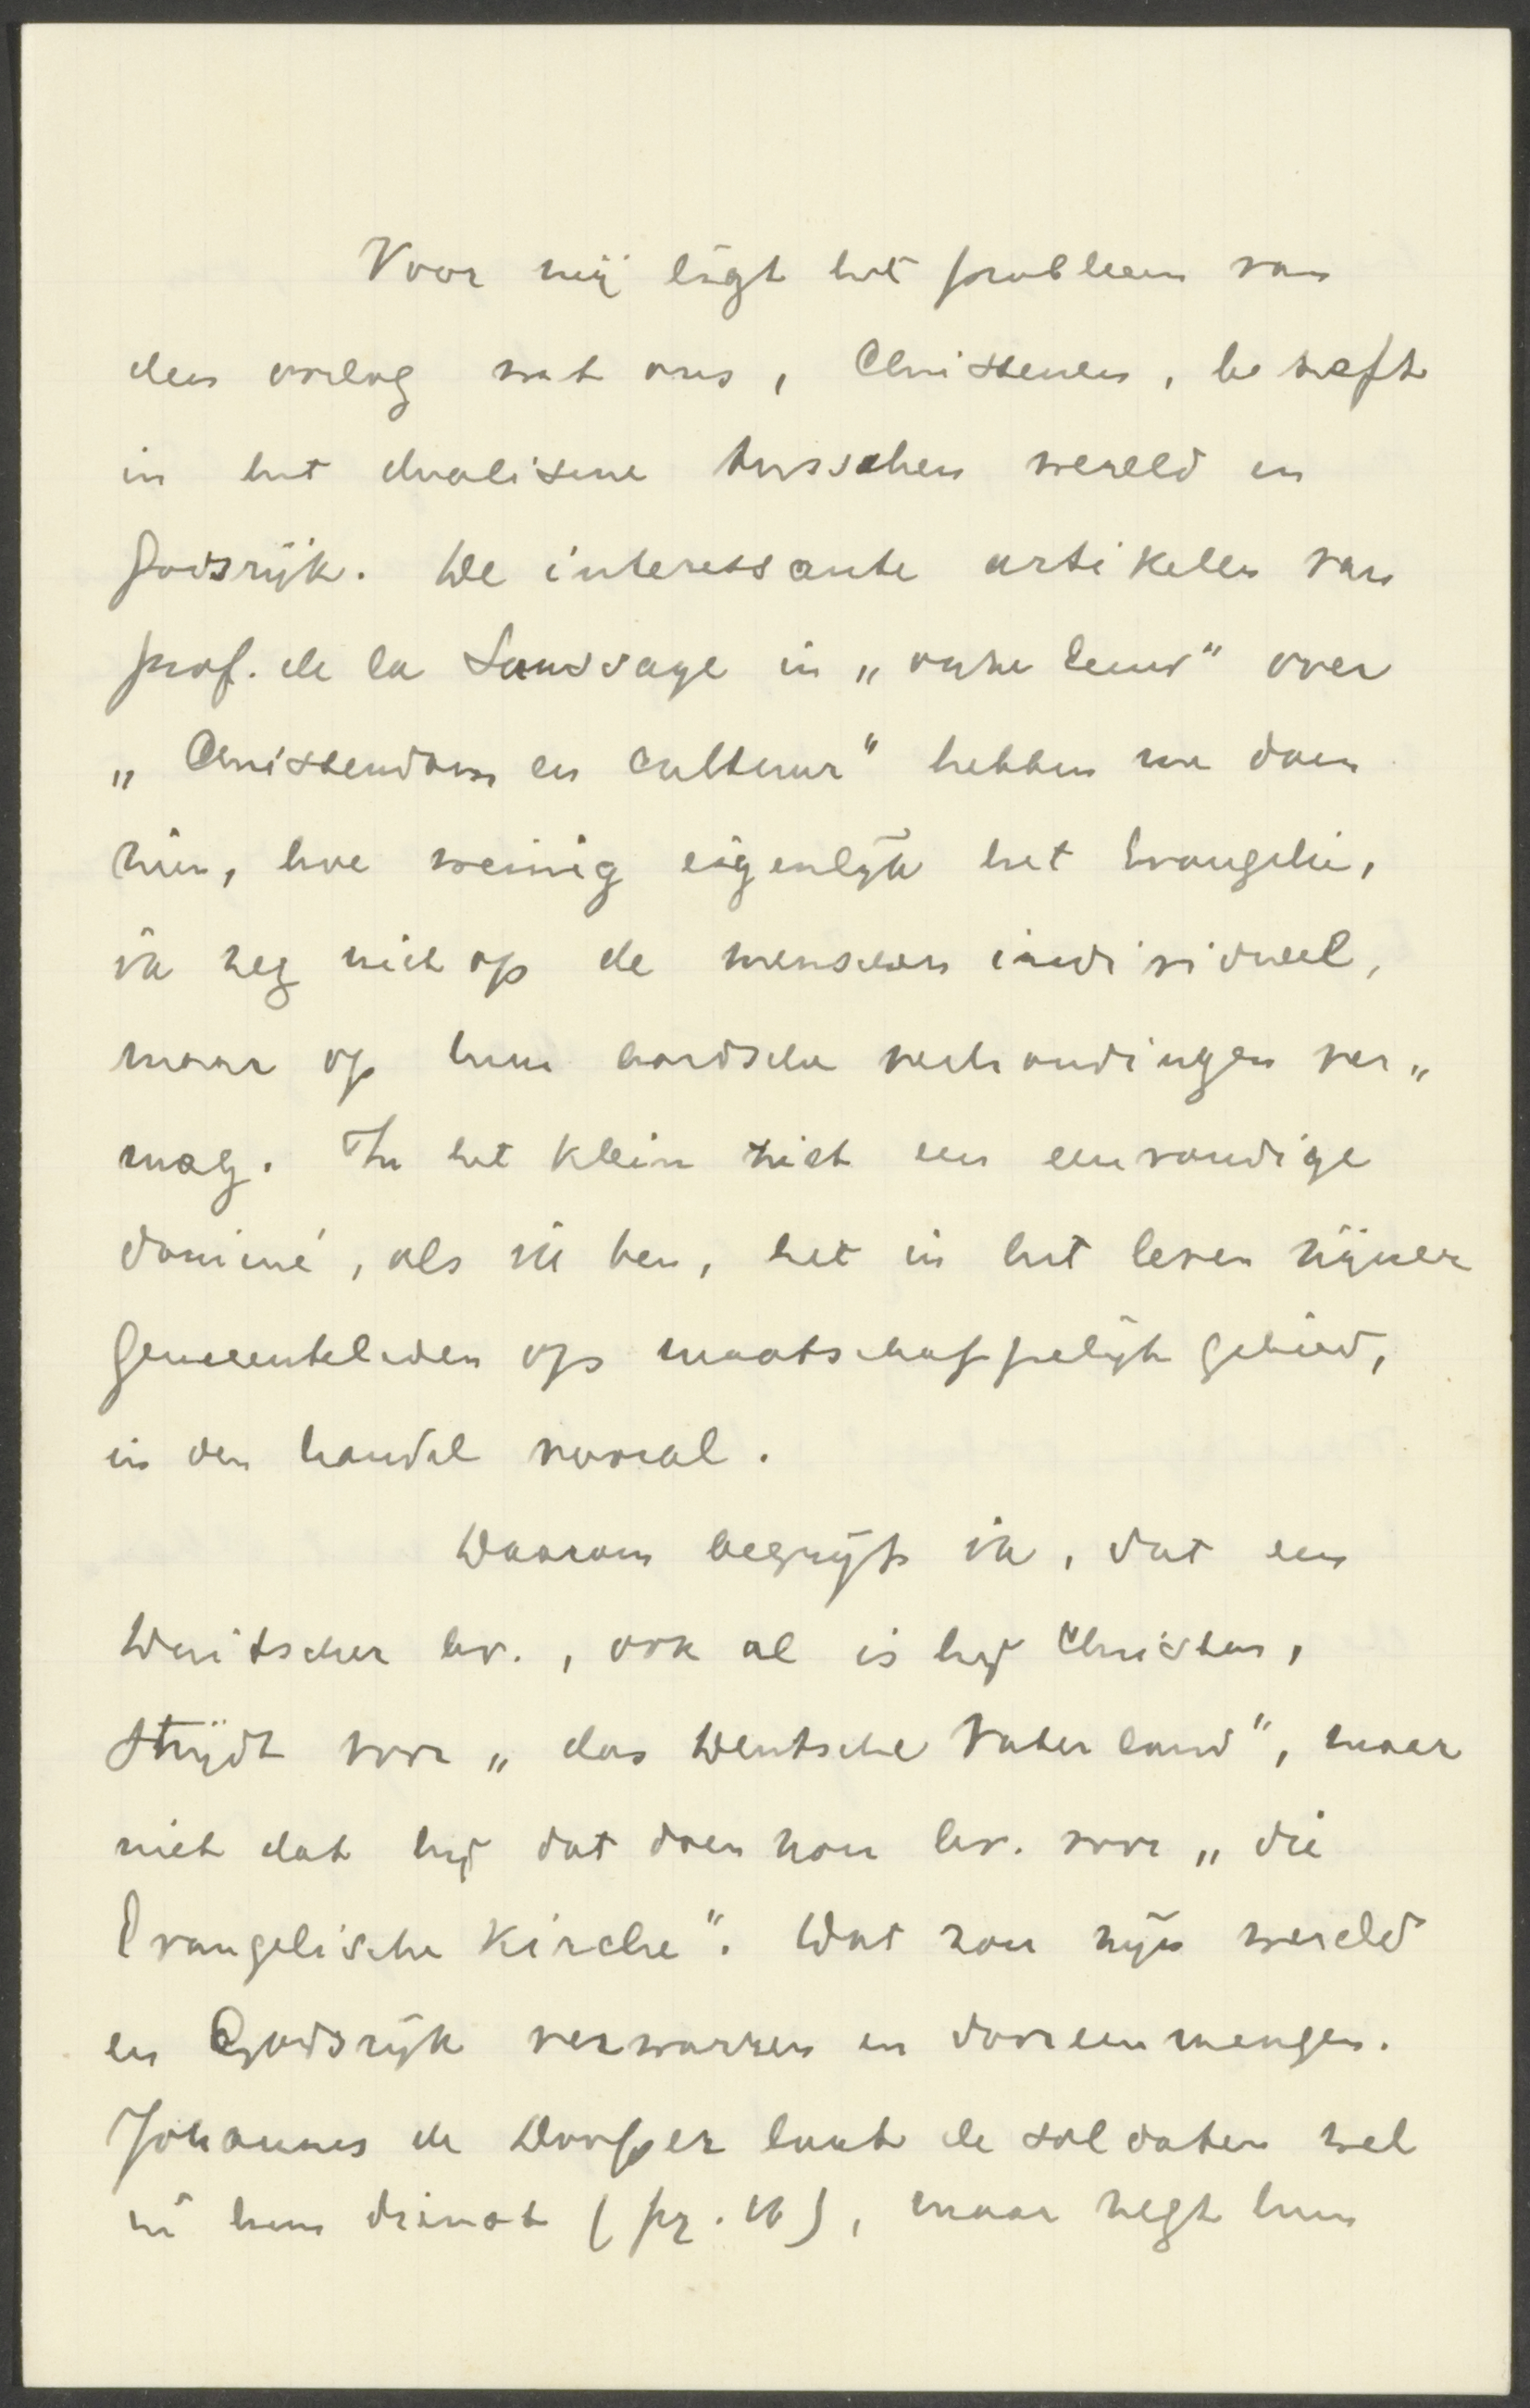 Voor mij ligt het probleem van
den oorlog wat ons, Christenen, betreft
in het dualisme tusschen wereld en
Godsrijk. De interessante artikelen van
prof. de la Saussaye in „onze Eeuw" over
„Christendom en cultuur" hebben me doen
zien, hoe weinig eigenlijk het Evangelie,
ik zeg niet op de menschen individueel,
maar op hun aardsche verhoudingen ver„
mag. In het klein ziet een eenvoudige
dominé, als ik ben, het in het leven zijner
gemeenteleden op maatschappelijk gebied,
in den handel vooral.
Daarom begrijp ik, dat een
Duitscher bv., ook al is hij Christen,
strijdt voor „das Deutsche Vaterland", maar
niet dat hij dat doen zou bv. voor „die
Evangelische Kirche". Dat zou zijn wereld
en Godsrijk verwarren en dooreenmengen.
Johannes de Dooper laat de soldaten wel
in hun dienst (pg. 16), maar zegt hun